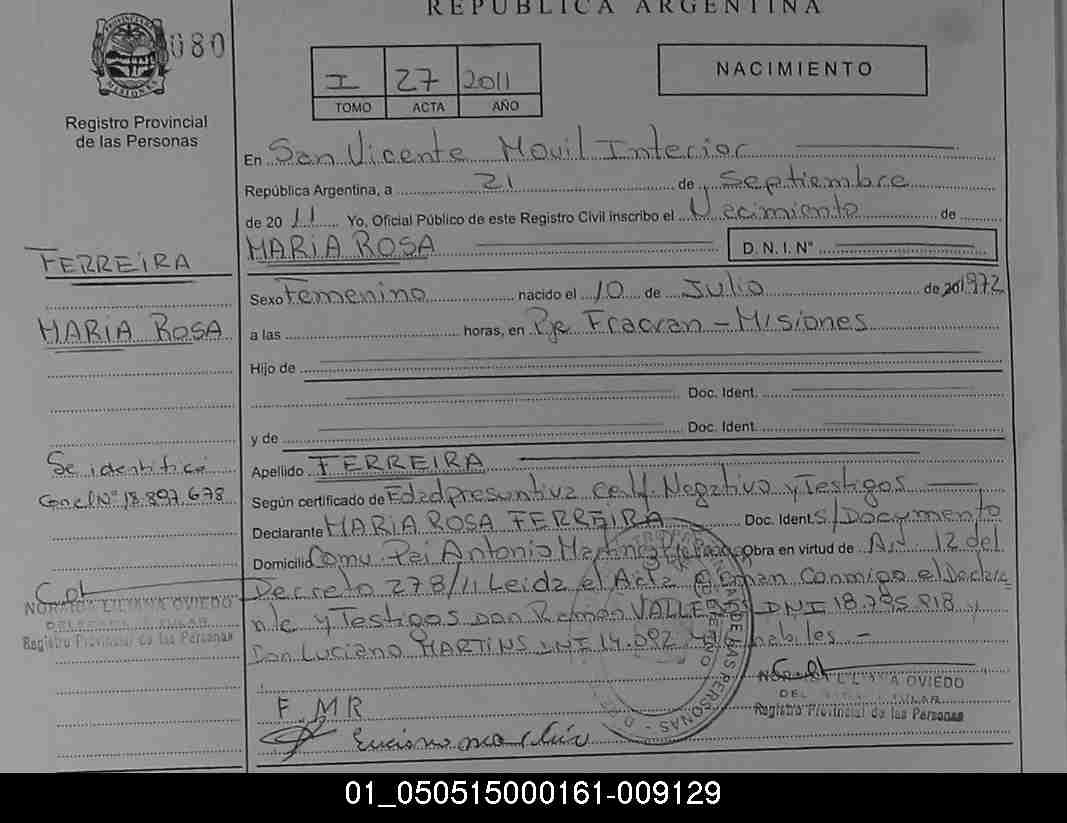 REPUBLICA ARGENTINA
080
I 27 2011
TOMO ACTA AÑO
NACIMIENTO
Registro Provincial
de las Personas
En San Vicente Movil Interior
República Argentina, a 21 de Septiembre
de 2011 Yo, Oficial Público de este Registro Civil inscribo el Necimiento de
MARIA ROSA D. N. I. N°
FERREIRA
Sexo Femenino nacido el 10 de Julio de 201972
MARIA ROSA
a las horas, en Pje Fracran - Misiones
Hijo de
Doc. Ident.
y de Doc. Ident.
Se identifica
con el N° 18.897.678
Apellido FERREIRA
Según certificado de Edad presuntiva cert. Negativo y Testigos
Declarante MARIA ROSA FERREIRA Doc. Ident. S/Documento
Domicilio Comu. Pei Antonio Martinez Obra en virtud de Art. 12 del
Decreto 278/11 Leida el Acta Conmigo el Declara
nte y Testigos Don Ramón VALLE DNI 18.795.818 y
Don Luciano MARTINS DNI 14.092 habiles -
NORMA LILIANA OVIEDO
DELEGADA TITULAR
Registro Provincial de las Personas
DE LAS PERSONAS
F. MR
NORMA LILIANA OVIEDO
DELEGADA TITULAR
Registro Provincial de las Personas
01_050515000161-009129